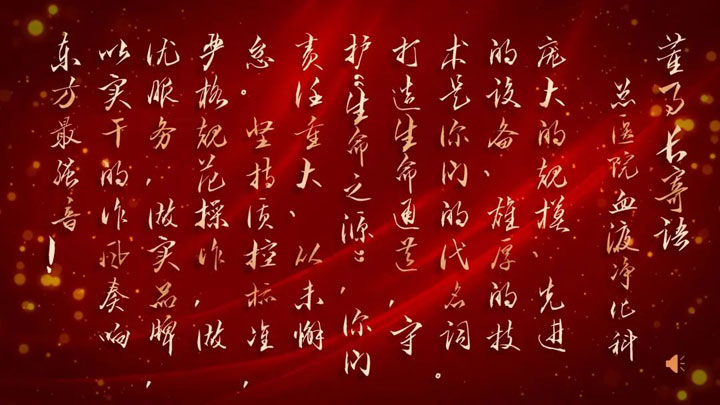 董事长寄语
总医院血液净化科
庞大的规模、先进
的设备、雄厚的技
术是你们的代名词。
打造生命通道，守
护“生命之源”，你们
责任重大、从未懈
怠。坚持质控标准，
严格规范操作，做
优服务，做实品牌，
以实干的作风奏响
东方最强音！